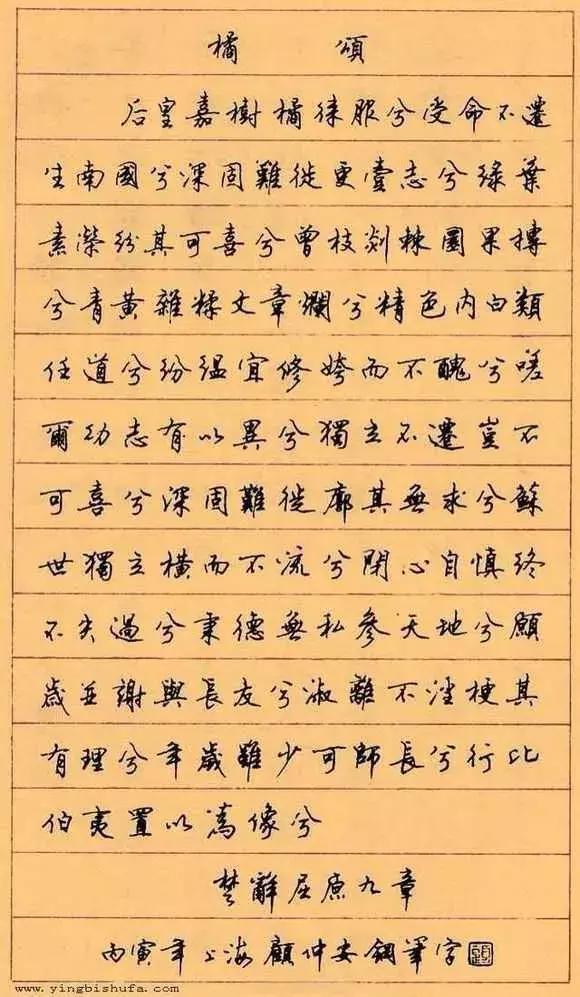 橘頌
后皇嘉樹橘徕服兮受命不遷
生南國兮深固難徙更壹志兮綠葉
素榮紛其可喜兮曾枝剡棘圓果摶
兮青黃雜糅文章爛兮精色內白類
任道兮紛緼宜修姱而不醜兮嗟
爾幼志有以異兮獨立不遷豈不
可喜兮深固難徙廓其無求兮蘇
世獨立橫而不流兮閉心自慎終
不失過兮秉德無私參天地兮願
歲並謝與長友兮淑離不淫梗其
有理兮年歲雖少可師長兮行比
伯夷置以為像兮
楚辭屈原九章
丙寅年上海顧仲安鋼筆字
www.yingbishufa.com